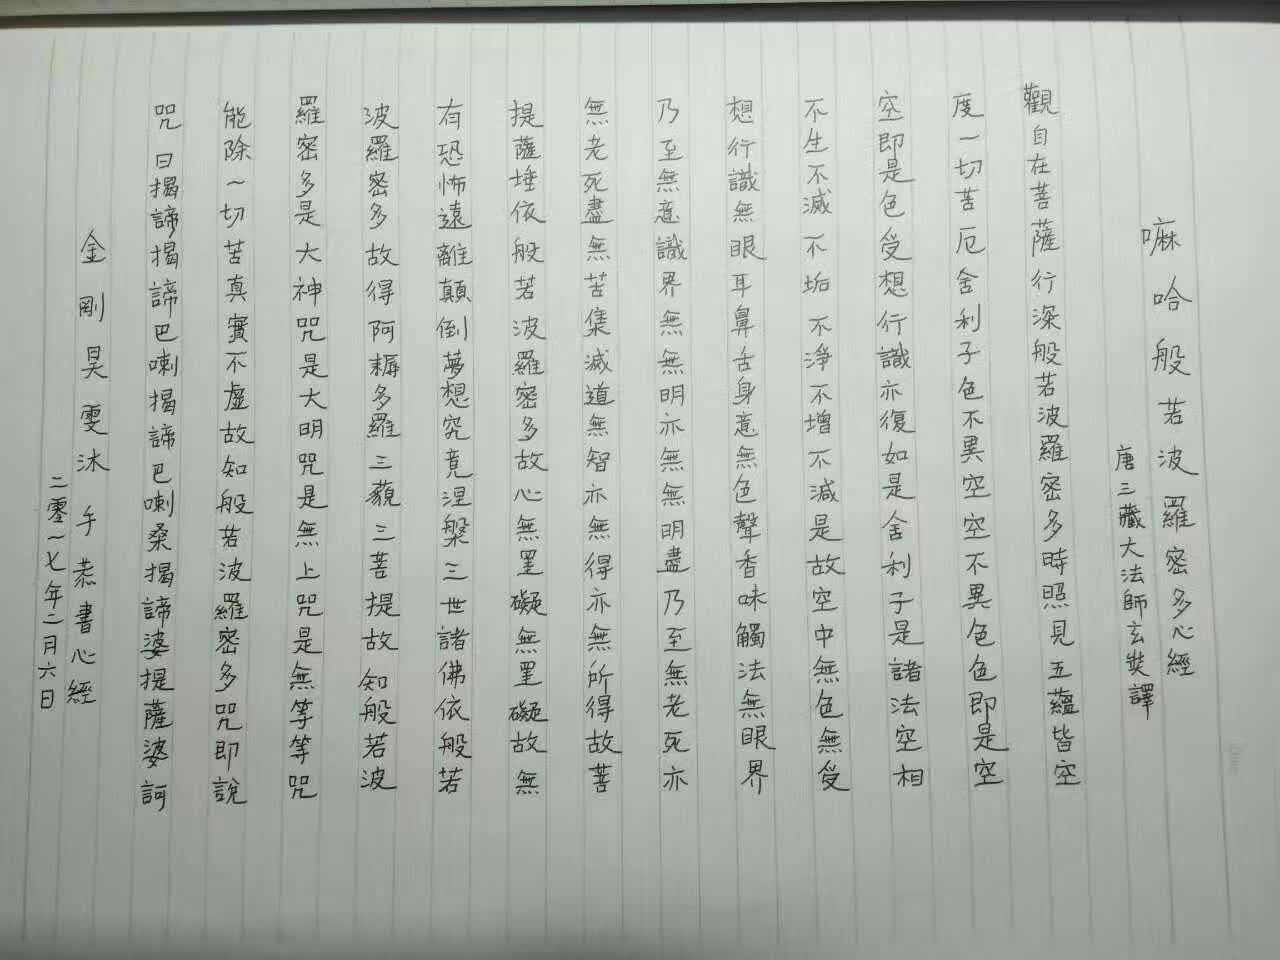 嘛哈般若波羅密多心經
唐三藏大法師玄奘譯
觀自在菩薩行深般若波羅密多時照見五蘊皆空
度一切苦厄舍利子色不異空空不異色色即是空
空即是色受想行識亦復如是舍利子是諸法空相
不生不滅不垢不淨不增不減是故空中無色無受
想行識無眼耳鼻舌身意無色聲香味觸法無眼界
乃至無意識界無無明亦無無明盡乃至無老死亦
無老死盡無苦集滅道無智亦無得亦無所得故菩
提薩埵依般若波羅密多故心無罣礙無罣礙故無
有恐怖遠離顛倒夢想究竟涅槃三世諸佛依般若
波羅密多故得阿耨多羅三藐三菩提故知般若波
羅密多是大神咒是大明咒是無上咒是無等等咒
能除一切苦真實不虛故知般若波羅密多咒即說
咒曰揭諦揭諦巴喇揭諦巴喇桑揭諦婆提薩婆訶
金剛昊雯沐手恭書心經
二零一七年二月六日